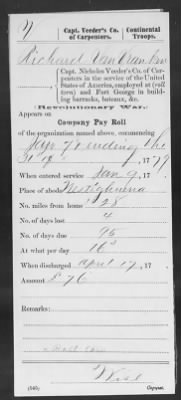 V
Capt. Veeder's Co. of Carpenters.
Continental Troops.
Richard Van Vranken
Capt. Nicholas Veeder's Co. of Carpenters in the service of the United States of America, employed at (roll torn) and Fort George in building barracks, bateaux, &c.
Revolutionary War.
Appears on
Company Pay Roll
of the organization named above, commencing
Jany 7 & ending the
31 of , 1779
When entered service Jan 9, 17
Place of abode
No. miles from home 28
No. of days lost 4
No. of days due 95
At what per day 16
When discharged April 17, 17
Amount £ 76
Remarks:
(545)
Copyist.